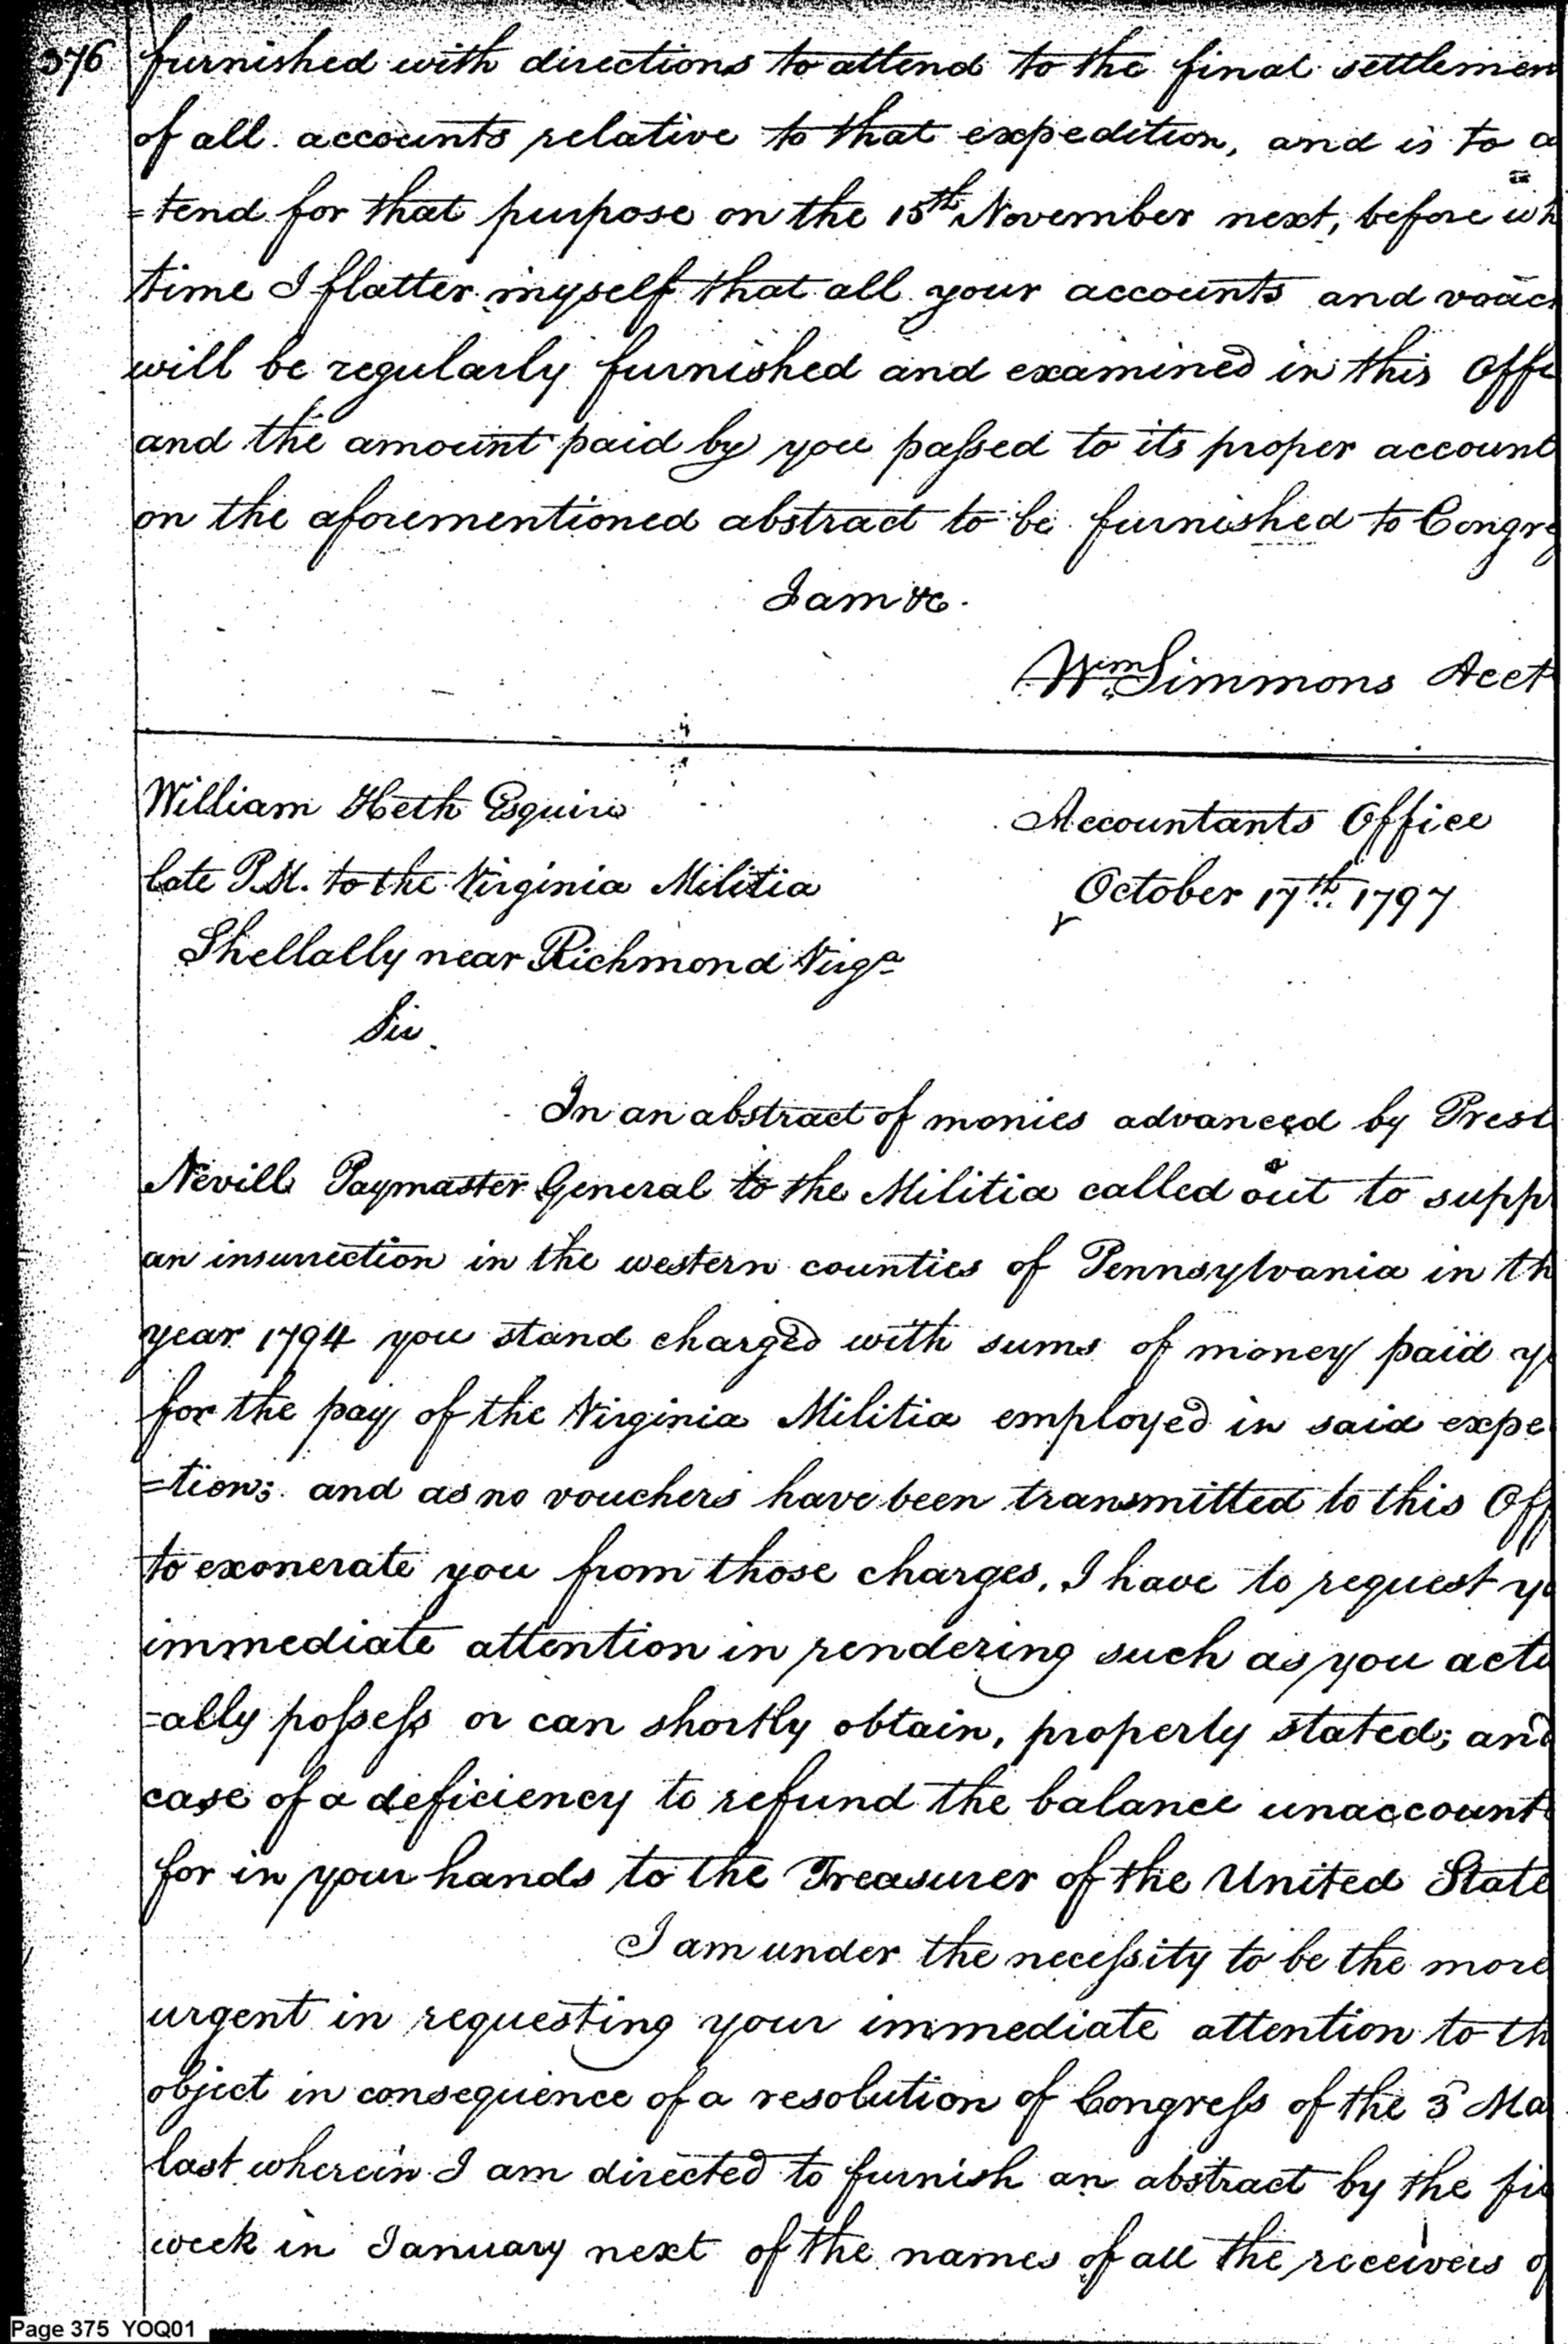 376 furnished with directions to attend to the final settlemen
of all accounts relative to that expedition, and is to a
=tend for that purpose on the 15th November next, before wh
time I flatter myself that all your accounts and vouc
will be regularly furnished and examined in this Offi
and the amount paid by you paſsed to its proper account
on the aforementioned abstract to be furnished to Congre
I am &c.
Wm. Simmons Acct
William Heth Esquire
late P.M. to the Virginia Militia
Shellally near Richmond Virga
Accountants Office
October 17th. 1797
Sir
In an abstract of monies advanced by Prest
Nevill Paymaster General to the Militia called out to supp
an insurrection in the western counties of Pennsylvania in th
year 1794 you stand charged with sums of money paid y
for the pay of the Virginia Militia employed in said expe
=tion; and as no vouchers have been transmitted to this Off
to exonerate you from those charges, I have to request yo
immediate attention in rendering such as you actu
=ally poſseſs or can shortly obtain, properly stated; and
case of a deficiency to refund the balance unaccount
for in your hands to the Treasurer of the United State
I am under the neceſsity to be the more
urgent in requesting your immediate attention to th
object in consequence of a resolution of Congreſs of the 3 Ma
last wherein I am directed to furnish an abstract by the fir
week in January next of the names of all the receivers of
Page 375 YOQ01